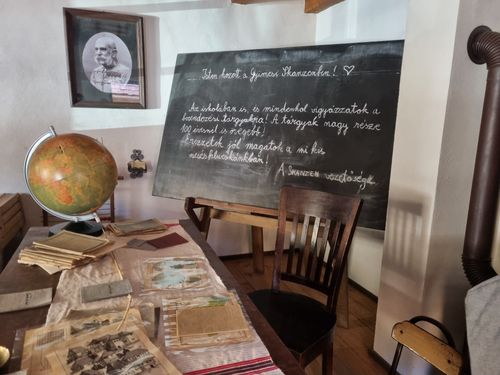 Isten hozott a Gyimesi Skanzenben! ♡
Az iskolában is, és mindenhol vigyázzatok a
berendezési tárgyakra! A tárgyak nagy része
100 évesnél is öregebb!
Érezzétek jól magatok a mi kis
mesés falucskánkban!
A SKANZEN vezetősége